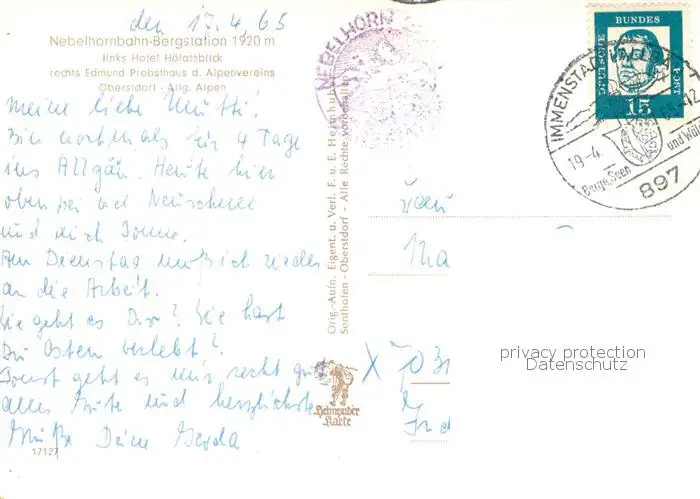 den 17.4.65
Nebelhornbahn-Bergstation 1920 m
links Hotel Höfatsblick
rechts Edmund Probsthaus d. Alpenvereins
Oberstdorf - Allg. Alpen
Meine liebe Mutti!
Bin nochmals für 4 Tage
ins Allgäu. Heute hier
oben bei viel Neuschnee
und auch Sonne.
Am Dienstag muß ich wieder
an die Arbeit.
Wie geht es Dir? Wie hast
Du Ostern verlebt?
Sonst geht es mir recht gut
alles Gute und herzlichste
Grüße Deine Gerda
17127
Orig.-Aufn. Eigent. u. Verl. F. u. E. Heimhuber
Sonthofen - Oberstdorf - Alle Rechte vorbehalten
Heimhuber
Karte
NEBELHORN
DEUTSCHE BUNDESPOST
15
IMMENSTADT (ALLGÄU)
19-4.65-12
Berge, Seen und
897
Frau
Ma
X
In d
privacy protection
Datenschutz